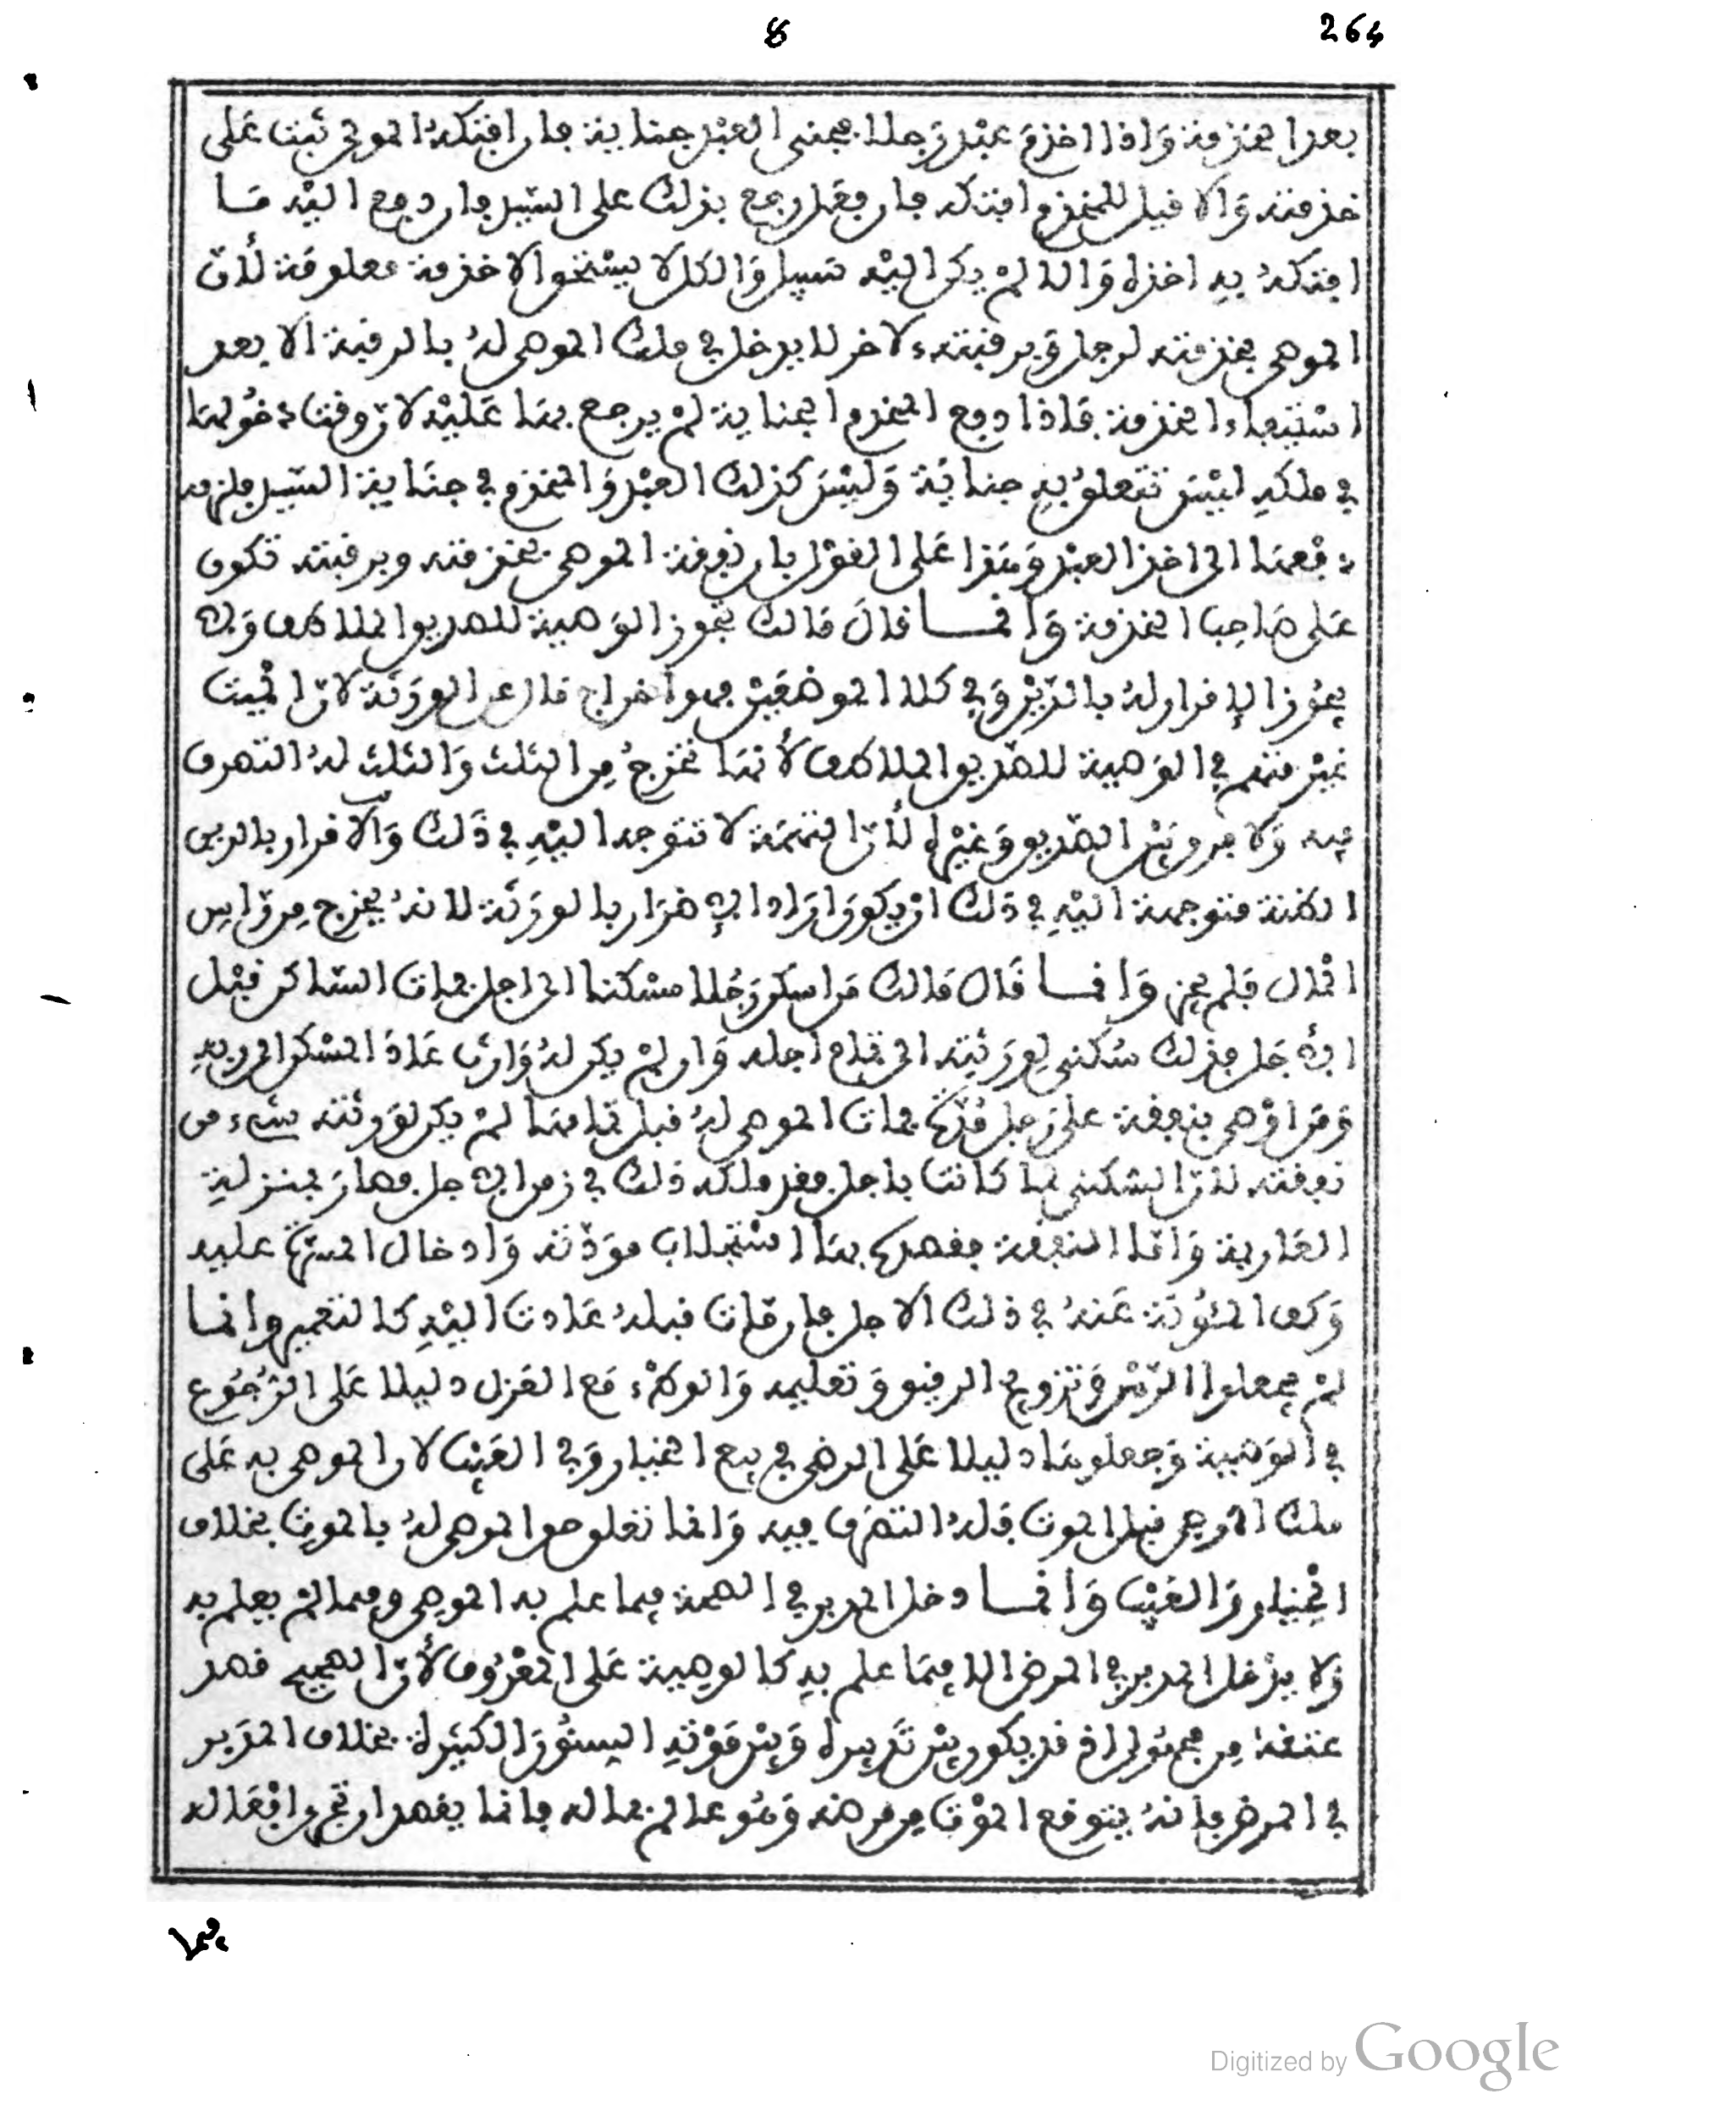 8 264
بعد الخدمة وإذا اخدم عبد رجلا فجنى العبد جناية فإن افتكه المولى ثبت على
خدمته وإلا قيل للمخدم افتكه فإن فعل رجع بذلك على السيد فإن دفع إليه ما
افتكه به أخذه وإلا لم يكن إليه سبيل والكل لا يستحق إلا خدمة معلومة لأن
الموصى بخدمته لرجل وبرقبته لآخر لا يدخل في ملك الموصى له بالرقبة إلا بعد
استيفاء الخدمة فإذا دفع المخدم الجناية لم يرجع بها عليه لأن وقت دخولها
في ملكه ليس تتعلق به جناية وليس كذلك العبد والمخدم في جناية السيد فلزمه
دفعها إلى أخذ العبد وهذا على القول بأن نفقة الموصى بخدمته وبرقبته تكون
على صاحب الخدمة وإنما قال مالك تجوز الوصية للصديق الملاطف ولا
يجوز الإقرار له بالدين وفي كلا الموضعين فهو اخراج مال عن الورثة لأن الميت
غير متهم في الوصية للصديق الملاطف لأنها تخرج من الثلث والثلث له التصرف
فيه ولا فرق بين الصديق وغيره لأن التهمة لا تتوجه إليه في ذلك والإقرار بالدين
الظنة متوجهة إليه في ذلك أن يكون أراد الإضرار بالورثة لأنه يخرج من رأس
المال فلم يجز وإنما قال مالك من اسكن رجلا مسكنا إلى أجل فمات الساكن قبل
الأجل فذلك سكنى لورثته إلى تمام أجله وإن لم يكن له وارث عاد المسكن إلى ربه
ومن أوصى بنفقة على رجل مدة فمات الموصى له قبل تمامها لم يكن لورثته شيء من
نفقته لأن السكنى لما كانت بأجل فقد ملكه ذلك في زمن الأجل فصار بمنزلة
العارية وأما النفقة فقصده بها استجلاب مودته وإدخال المسرة عليه
وكف المئونة عنه في ذلك الأجل فإن مات قبله عادت إليه كالتعمير وإنما
لم يجعلوا الرهن وتزويج الرقيق وتعليمه والوطء مع العزل دليلا على الرجوع
في الوصية وجعلوها دليلا على الرضى في بيع الخيار وفي العيب لأن الموصى به على
ملك الموصي قبل الموت فله التصرف فيه وإنما تعلق حق الموصى له بالموت بخلاف
الخيار والعيب وإنما دخل المدبر في الصحة فيما علم به الموصي وفيما لم يعلم به
ولا يدخل المدبر في المرض إلا فيما علم به كالوصية على المعروف لأن الصحيح قصد
عتقه من مجهول إذ قد يكون بين تدبيره وبين موته السنون الكثيرة بخلاف المدبر
في المرض فإنه يتوقع الموت من مرضه وهو عالم بماله فإنما يقصد ان تجري افعاله
فيما
Digitized by Google